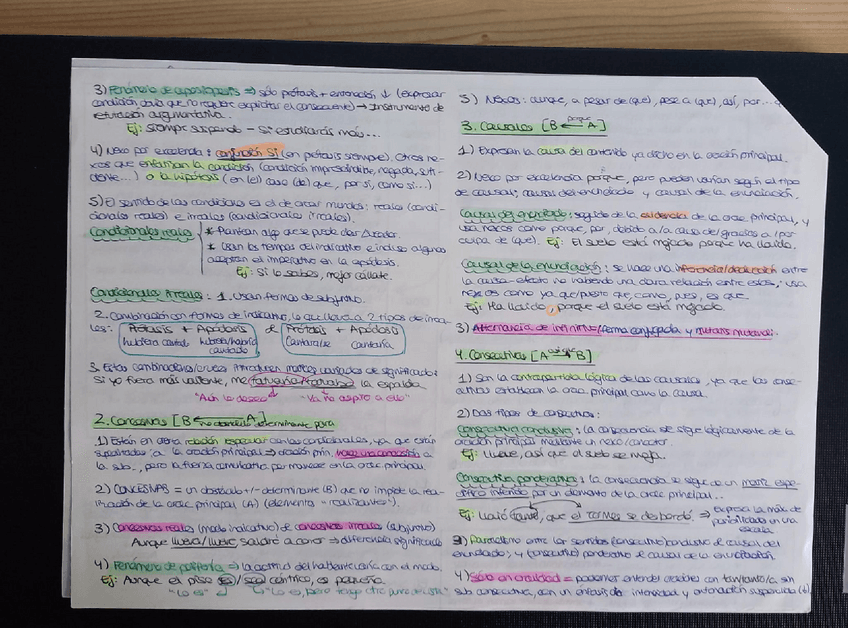 3) Fenómeno de aposiopesis => sólo prótasis + entonación ↓ (expresar
condición para que no requiere explicitar el consecuente) → Instrumento de
estructura argumentativa.
Ej: Siempre suspendo - Si estudiaras más...
4) Nexo por excelencia: conjunción Si (en prótasis siempre). Otros ne-
xos que enfatizan la condición (condición imprescindible, negada, sufi-
ciente...) o la hipótesis (en (el) caso (de) que, por si, como si...)
5) El sentido de las condicionales es el de crear mundos: reales (condi-
cionales reales) e irreales (condicionales irreales).
Condicionales reales * Plantean algo que se puede dar
* Usan los tiempos del indicativo e incluso algunos
aceptan el imperativo en la apódosis.
Ej: Si lo sabes, mejor cállate.
Condicionales irreales: 1. Usan formas de subjuntivo.
2. Combinación con formas de indicativo, lo que lleva a 2 tipos de irrea-
les: Prótasis + Apódosis & Prótasis + Apódosis
hubiera cantado hubiera/habría cantado Cantara/se Cantaría
3. Estas combinaciones introducen matices variados de significado:
Si yo fuera más valiente, me tatuaría la espalda
"Aún lo deseo" "Ya no aspiro a ello"
2. Concesivas [B ← no obstáculo determinante para A]
1) Están en una relación especular con las condicionales, ya que están
supeditadas a la oración principal => oración prin. hace una concesión a
la sub., pero la fuerza permanece en la orac principal.
2) CONCESIVAS = un obstáculo +/- determinante (B) que no impide la rea-
lización de la orac principal (A) (elementos "realizantes").
3) Concesivas reales (modo indicativo) & concesivas irreales (subjuntivo)
Aunque llueva/llueve, saldré a correr → diferencia significado
4) Fenómeno de polifonía => la actitud del hablante varía con el modo.
Ej: Aunque el piso es/sea céntrico, es pequeño.
"Lo es" "Lo es, pero tengo otro punto de vista"
5) Nexos: aunque, a pesar de (que), pese a (que), así, por... q
3. Causales [B ← porque A]
1) Expresan la causa del contenido ya dicho en la oración principal.
2) Nexo por excelencia porque, pero pueden variar según el tipo
de causal; causal del enunciado y causal de la enunciación.
Causal del enunciado: seguido de la evidencia de la orac. principal, y
usa nexos como porque, por, debido a/a causa de/gracias a/por
culpa de (que). Ej: El suelo está mojado porque ha llovido.
Causal de la enunciación: se hace una inferencia/deducción entre
la causa-efecto no habiendo una clara relación entre estos; usa
nexos como ya que/puesto que, como, pues, es que.
Ej: Ha llovido, porque el suelo está mojado.
3) Alternancia de infinitivo/forma conjugada y mutatis mutandi.
4. Consecutivas [A → así que B]
1) Son la contrapartida lógica de las causales, ya que las conse-
cutivas establecen la orac principal como la causa.
2) Dos tipos de consecutivas:
Consecutiva conclusiva: la consecuencia se sigue lógicamente de la
oración principal mediante un nexo/conector.
Ej: Llueve, así que el suelo se moja.
Consecutiva ponderativa: la consecuencia se sigue de un matiz espe-
cífico inferido por un elemento de la orac principal...
Ej: Llovió tanto, que el Tormes se desbordó. => Expresa la más de
posibilidades en una
escala
3) Paralelismo entre los sentidos (consecutivo) conclusivo & causal del
enunciado; y (consecutivo) ponderativo & causal de la enunciación.
4) Sólo en oralidad = podemos entender oraciones con tan/tanto/a sin
sub consecutiva, con un énfasis de intensidad y entonación suspendida (↓)